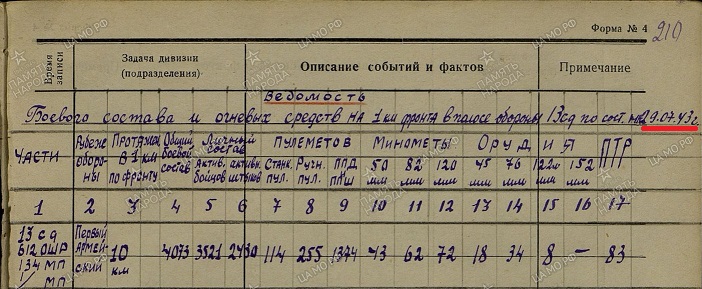 Форма № 4
210
Время записи
Задача дивизии
(подразделения)
Описание событий и фактов
Примечание
Ведомость
Боевого состава и огневых средств на 1 км фронта в полосе обороны 13сд по сост. на 29.07.43г.
Части
Рубеж обороны
Протяжен. в 1 км по фронту
Общий боевой состав
Личный состав
Актив. бойцов
активн. штыков
Пулеметов
Станк. пул.
Ручн. пул.
ППД ППШ
Минометы
50 мм
82 мм
120 мм
Орудия
45 мм
76 мм
122 мм
152 мм
ПТР
1 2 3 4 5 6 7 8 9 10 11 12 13 14 15 16 17
13 сд
612 ОШР
134 МП
МП
Первый армейский
10 км
4073 3521 2430 114 255 1344 43 62 72 18 34 8 – 83
ПАМЯТЬ НАРОДА
ЦАМО.РФ